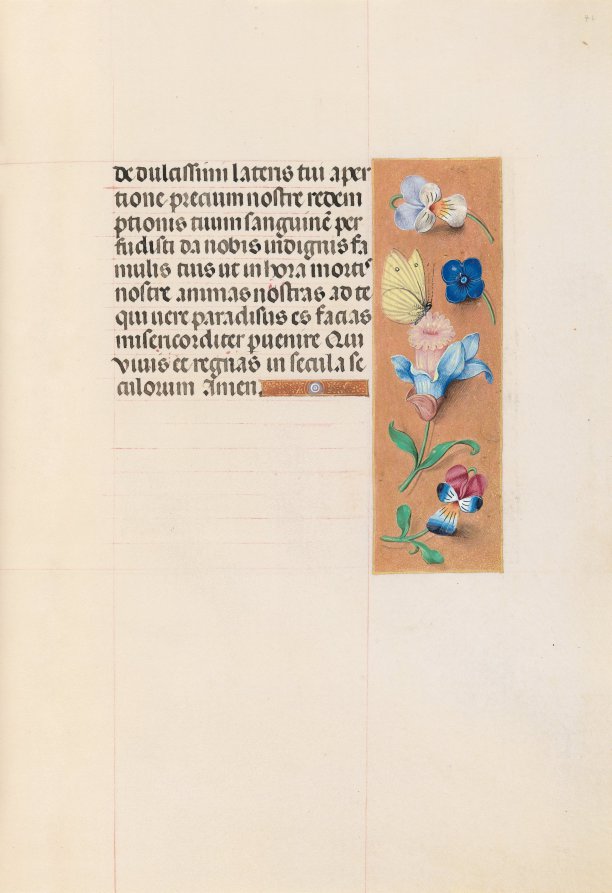 de dulcissimi lateris tui aper
tione precium nostre redem
ptionis tuum sanguinē per
fudisti da nobis indignis fa
mulis tuis ut in hora mortis
nostre animas nostras ad te
qui vere paradisus es facias
misericorditer puenire Qui
vivis et regnas in secula se
culorum Amen.